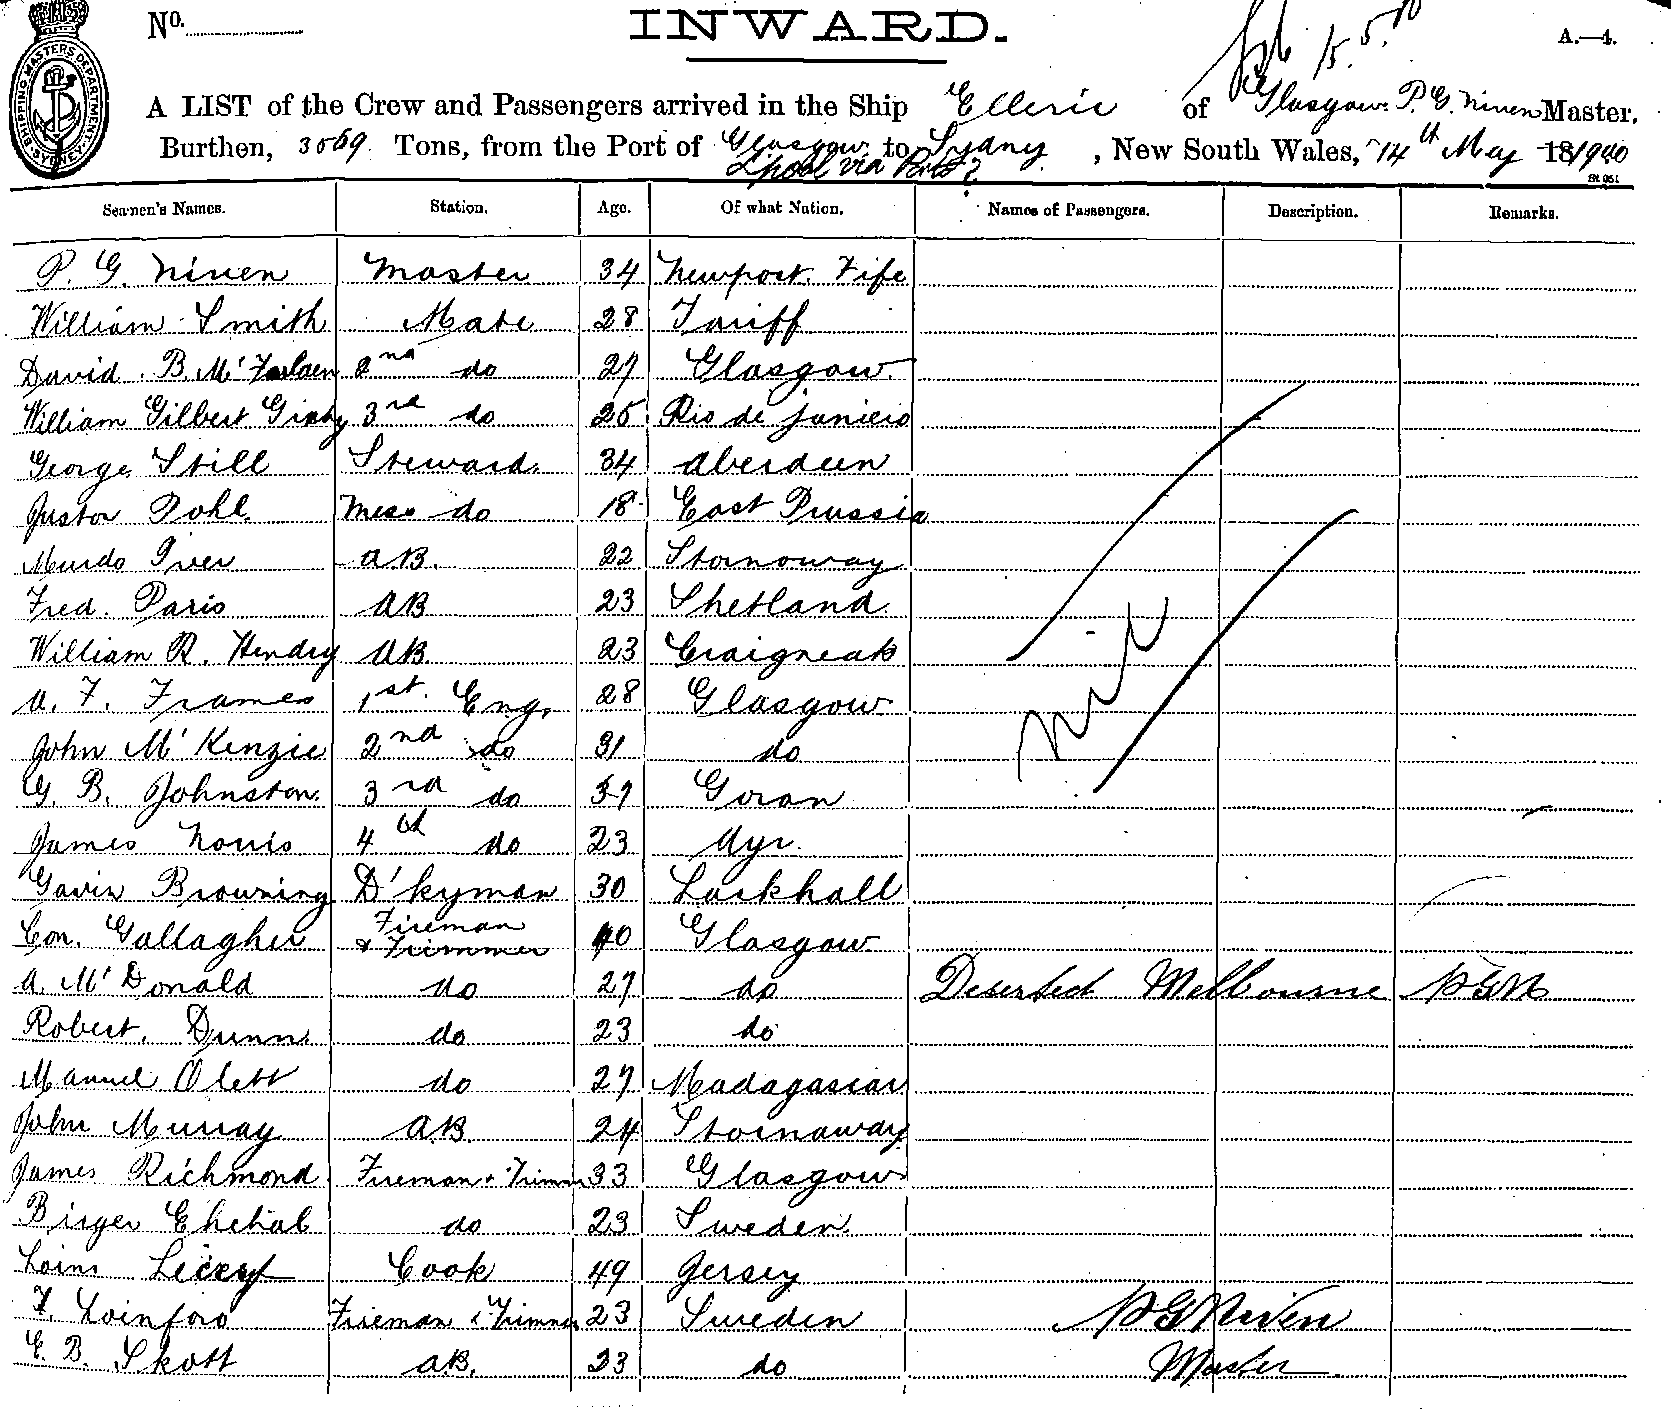 No.
INWARD.
15.5.
A.—4.
SHIPPING MASTERS DEPARTMENT SYDNEY
A LIST of the Crew and Passengers arrived in the Ship Elleric of Glasgow. P. G. Niven Master,
Burthen, 3569 Tons, from the Port of Glasgow to Sydney, New South Wales, 14th May 181900
L'pool via Ports
Seamen's Names. Station. Age. Of what Nation. Names of Passengers. Description. Remarks.
P. G. Niven Master 34 Newport. Fife
William Smith Mate 28 Tariff
David B. McFarlaen 2nd do 27 Glasgow
William Gilbert 3rd do 25 Rio de Janieio
George Still Steward 34 Aberdeen
Gustov Pohl Mess do 18 East Prussia
Murdo Iver AB. 22 Stornoway
Fred. Paris AB 23 Shetland
William R. Hendry AB 23 Craigneak
A. F. Frames 1st. Eng. 28 Glasgow
nil
John McKenzie 2nd do 31 do
G. B. Johnston 3rd do 37 Govan
James Norris 4th do 23 Ayr.
Gavin Browning D'kyman 30 Larkhall
Con. Gallagher Fireman & Trimmer 40 Glasgow
A. McDonald do 27 do Deserted Melbourne PGN
Robert Dunn do 23 do
Manuel Olett do 27 Madagascar
John Murray AB. 24 Stornaway
James Richmond Fireman & Trimmer 33 Glasgow
Birger do 23 Sweden
Cook 49 Jersey
F. Fireman & Trimmer 23 Sweden PGNiven
E. B. Skott AB. 23 do Master